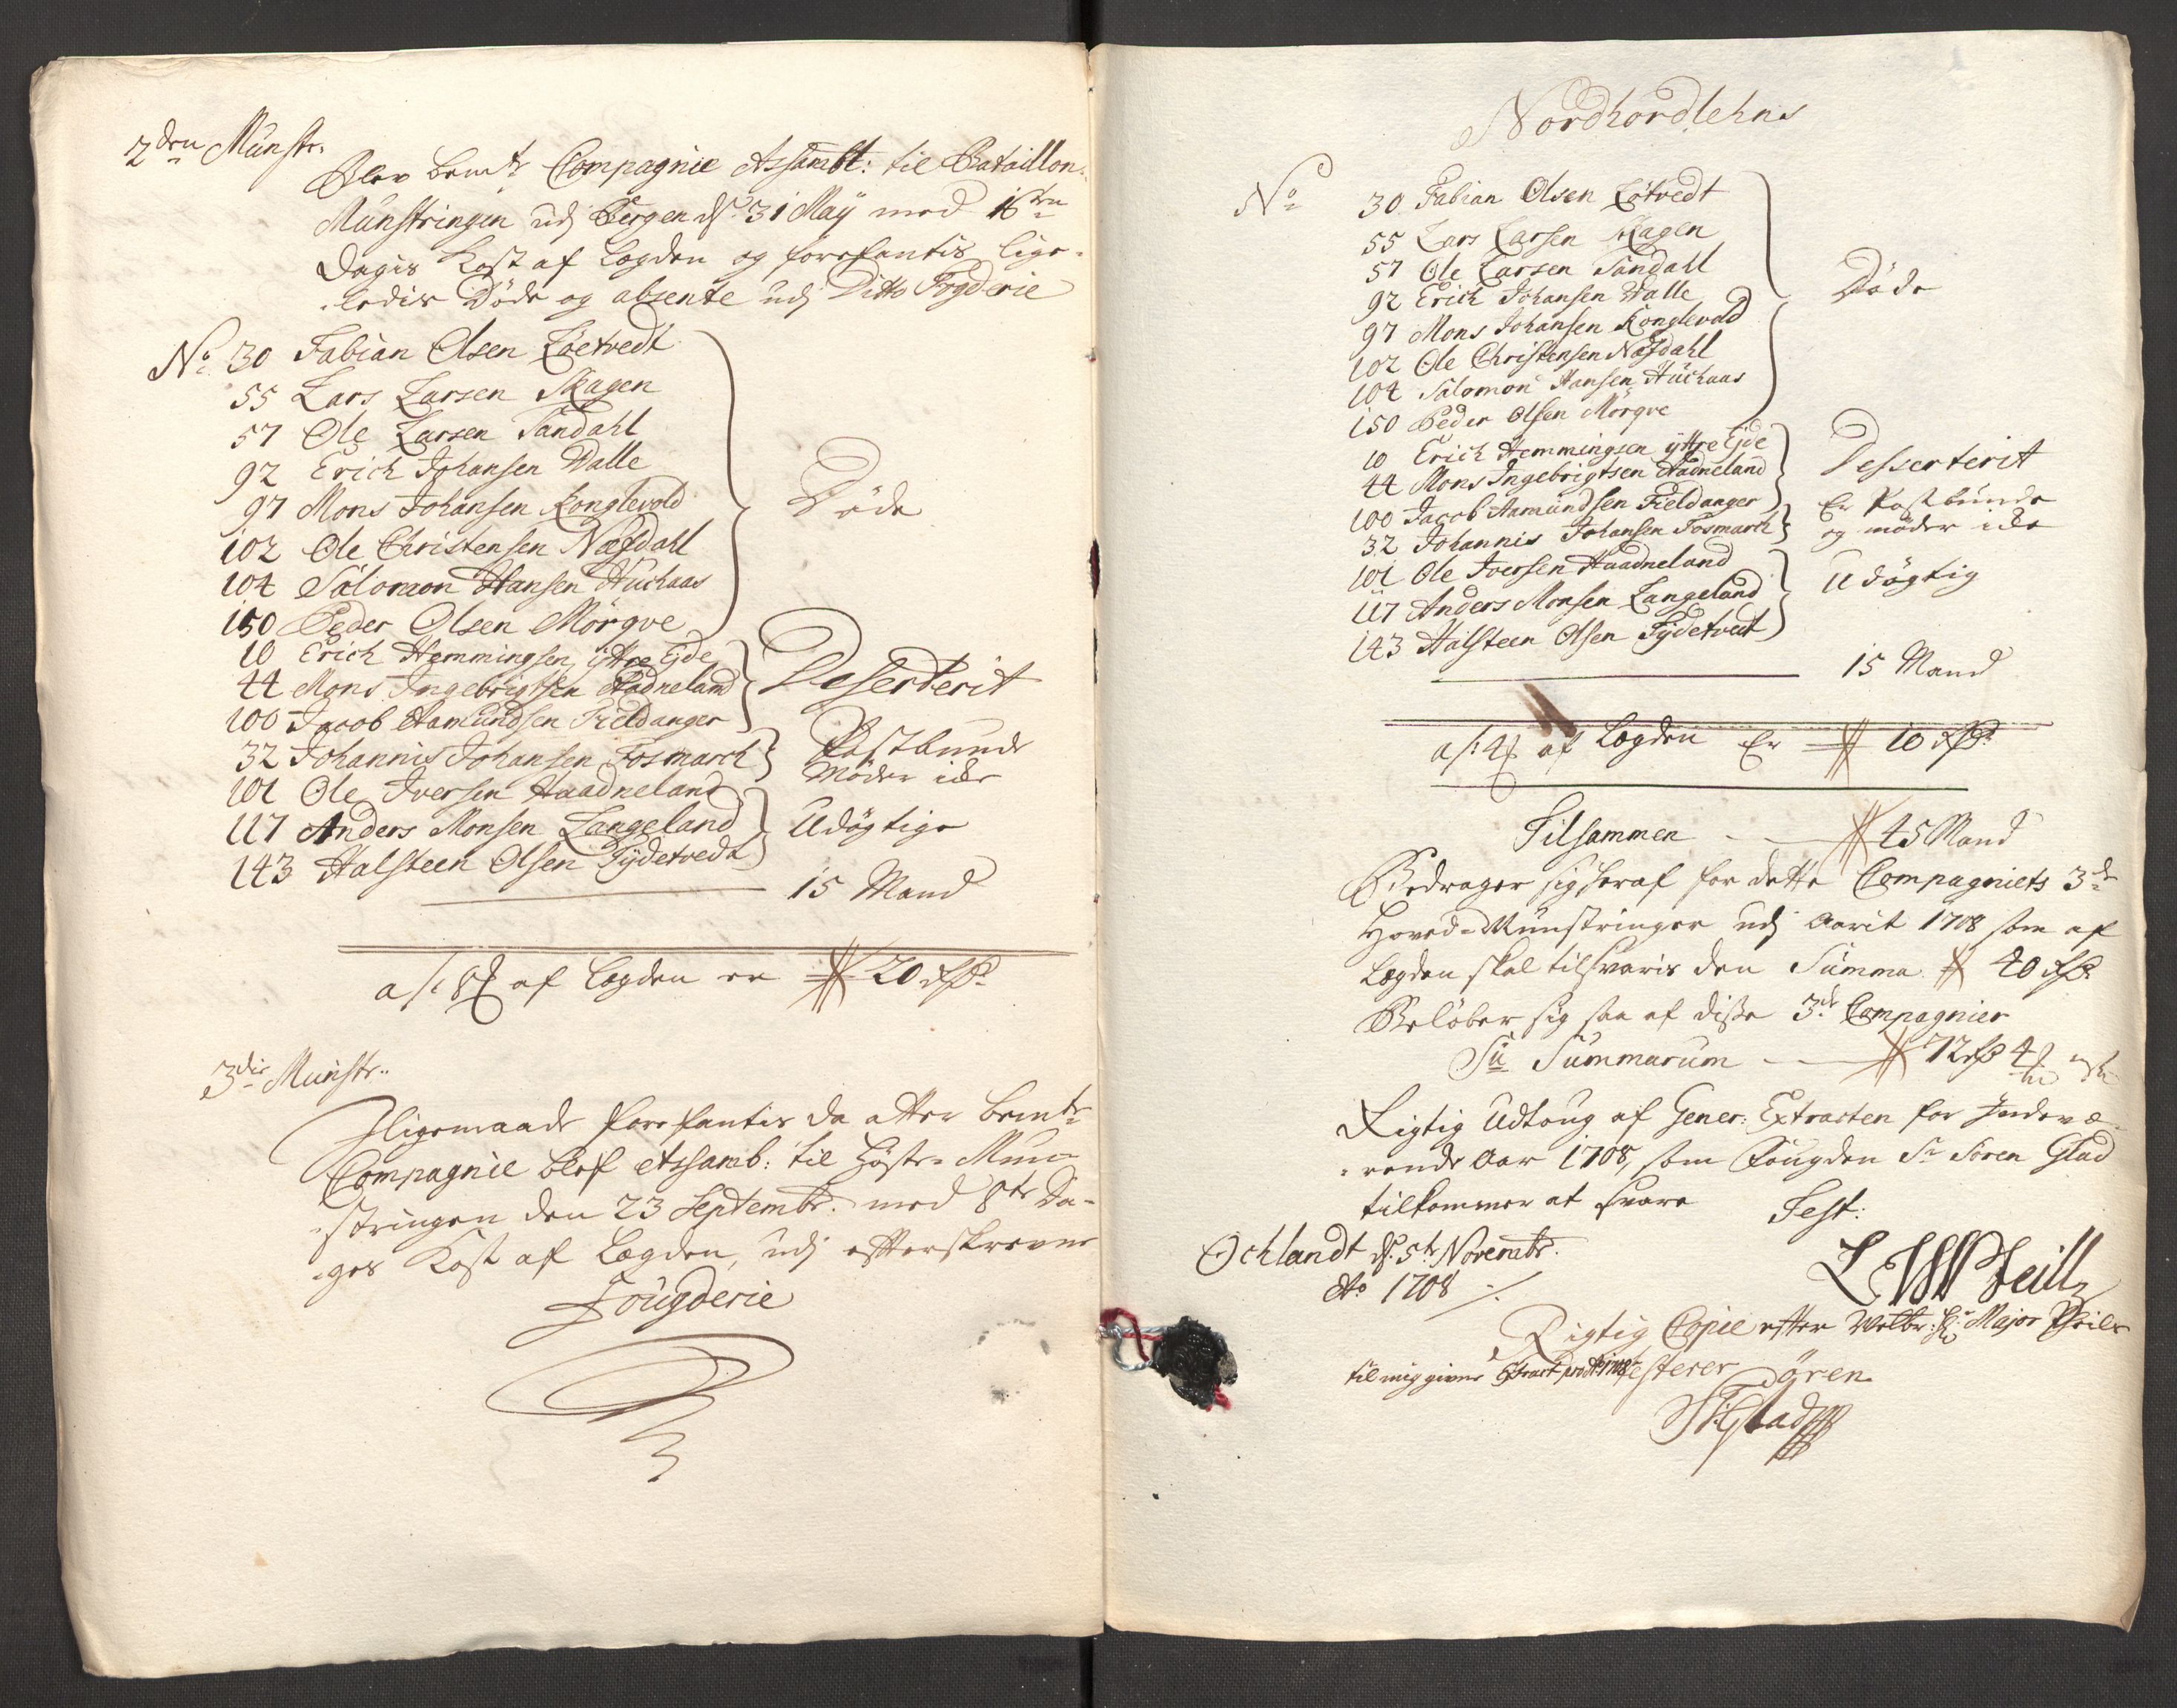 2den Munstr:
Blev bemte Compagnie Assambt: til Bataillon
Munstringen udj Bergen ds: 31 Maÿ med 16ten
Dagis Kost af Legden og forefantis lige-
ledis Døde og absente udj Ditto Fogderie
No: 30 Fabian Olsen Løetvedt
55 Lars Larsen Skagen
57 Ole Larsen Sandahl
92 Erich Johansen Walle
97 Mons Johansen Konglevold
102 Ole Christensen Næssdahl
104 Salomon Hansen Huchaas
150 Peder Olsen Mörqve
Døde
10 Erich Hemmingsen ÿttre Ejde
44 Mons Ingebrigtsen Aadneland
100 Jacob Aamundsen Fieldanger
Deserterit
32 Johannis Johansen Fosmarch
Postbunde
Møder icke
101 Ole Iversen Haadneland
117 Anders Monsen Langeland
143 Halsteen Olsen Tÿdetvedt
Udøgtige
15 Mand
a 8 af Legden er 20
3die Munstr:
Jligemaade forefantis da atter bemte
Compagnie blef Assamb: til Høste Mun-
stringen den 23 Septembr: med 8te Da-
ges Kost af Legden, udj efterskrevne
Fougderie
Nordhordlehns
No
30 Fabian Olsen Løtvedt
55 Lars Larsen Skagen
57 Ole Larsen Sandall
92 Erich Johansen Walle
97 Mons Johansen Konglevold
102 Ole Christensen Næssdahl
104 Salomon Hansen Huchaas
150 Peder Olsen Mörqve
Døde
10 Erich Hemmingsen ÿttre Ejde
44 Mons Ingebrigtsen Aadneland
100 Jacob Aamundsen Fieldanger
Desserterit
32 Johannis Johansen Fosmarch
Er Postbunde
og møder icke
101 Ole Iversen Haadneland
117 Anders Monsen Langeland
143 Halsteen Olsen Tÿdetvedt
Udøgtig
15 Mand
a 4 af Legden Er 10
Tilsammen 45 Mand
Bedrager sig heraf for dette Compagniets 3de
Hoved-Munstringer udj Aarit 1708 som af
Legden skal tilsvaris den Summa 40
Beløber sig saa af disse 3de Compagnier
Su Summarum 72 4
Rigtig Udtoug af Gener: Extracten for Indevæ-
rende Aar 1708, som Fougden Sr Sören Glad
tilkommer at svare Test:
Ochlandt ds: 5te Novembr:
Ao 1708
L W Pfeill
Rigtig Copie efter Welbr: Hr Major Pheils
til mig givne Extract testerer Sören